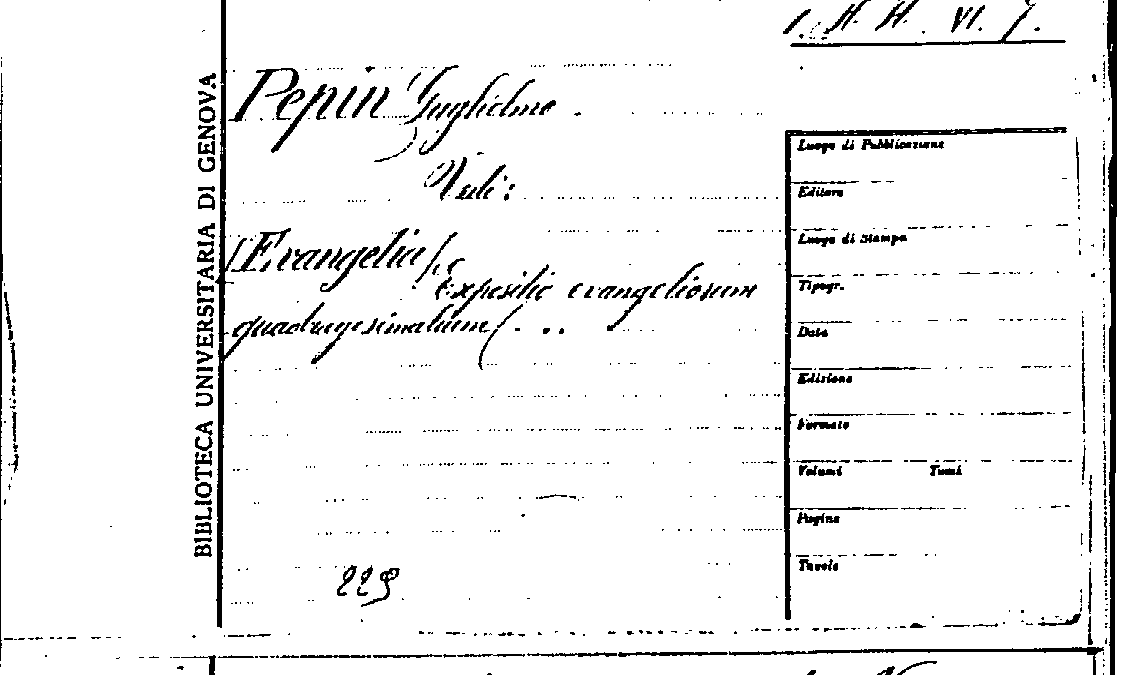 1. H. H. VI. 7.
BIBLIOTECA UNIVERSITARIA DI GENOVA
Pepin Guglielmo.
Vedi:
[Evangelia].
Expositio evangeliorum
quadragesimalium ...
229
Luogo di Pubblicazione
Editore
Luogo di Stampa
Tipogr.
Data
Edizione
Formato
Volumi Tomi
Pagine
Tavole